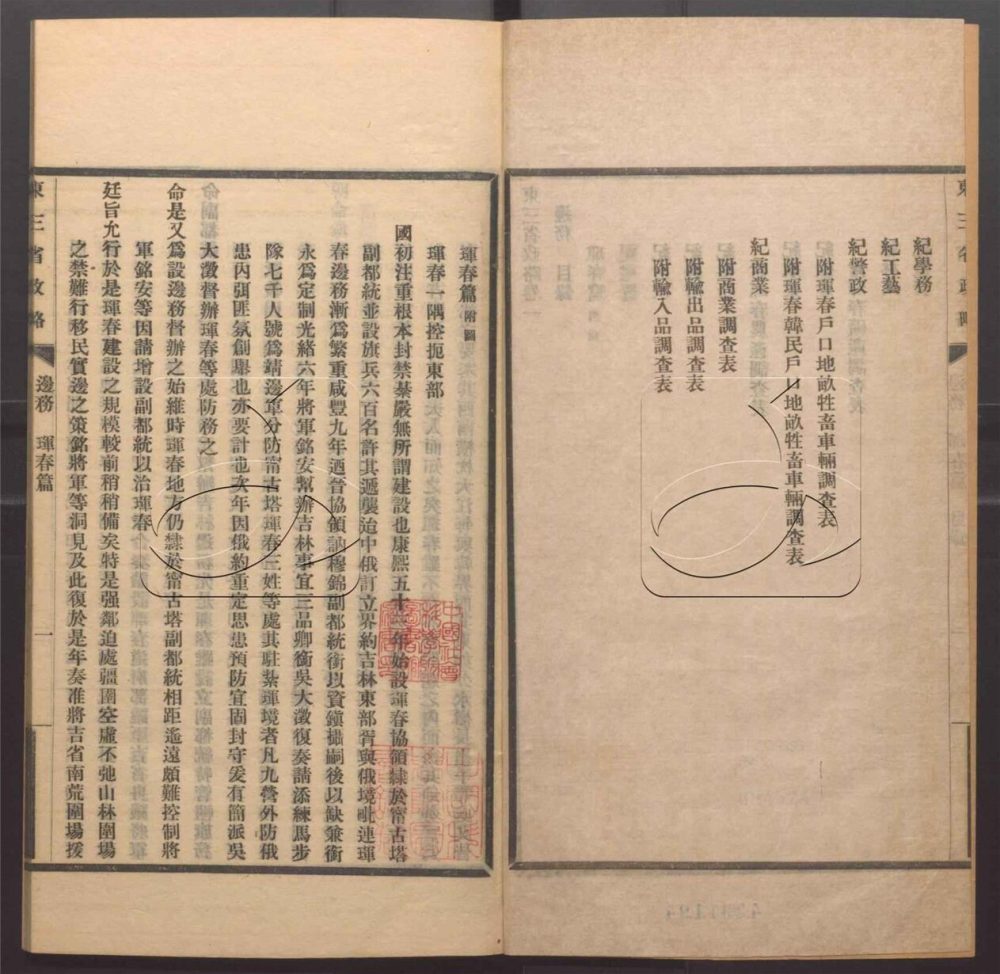 紀學務
紀工藝
紀警政
附琿春戶口地畝牲畜車輛調查表
附琿春韓民戶口地畝牲畜車輛調查表
紀商業
附商業調查表
附輸出品調查表
附輸入品調查表
琿春篇 附圖
琿春一隅控扼東部
國初注重根本封禁綦嚴無所謂建設也康熙五十年始設琿春協領隸於甯古塔
副都統並設旗兵六百名許其遞襲迨中俄訂立界約吉林東部胥與俄境毗連琿
春邊務漸爲繁重咸豐九年迺晉協領訥穆錦副都統銜以資鎭攝嗣後以缺兼銜
永爲定制光緒六年將軍銘安幫辦吉林事宜三品卿銜吳大澂復奏請添練馬步
隊七千人號爲靖邊軍分防甯古塔琿春三姓等處其駐紮琿境者凡九營外防俄
患內弭匪氛創舉也亦要計也次年因俄約重定思患預防宜固封守爰有簡派吳
大澂督辦琿春等處防務之
命是又爲設邊務督辦之始維時琿春地方仍隸於甯古塔副都統相距遙遠頗難控制將
軍銘安等因請增設副都統以治琿春
廷旨允行於是琿春建設之規模較前稍稍備矣特是强鄰迫處疆圉空虛不弛山林圍場
之禁難行移民實邊之策銘將軍等洞見及此復於是年奏准將吉省南荒圍場撥
東三省政略 邊務 琿春篇 一